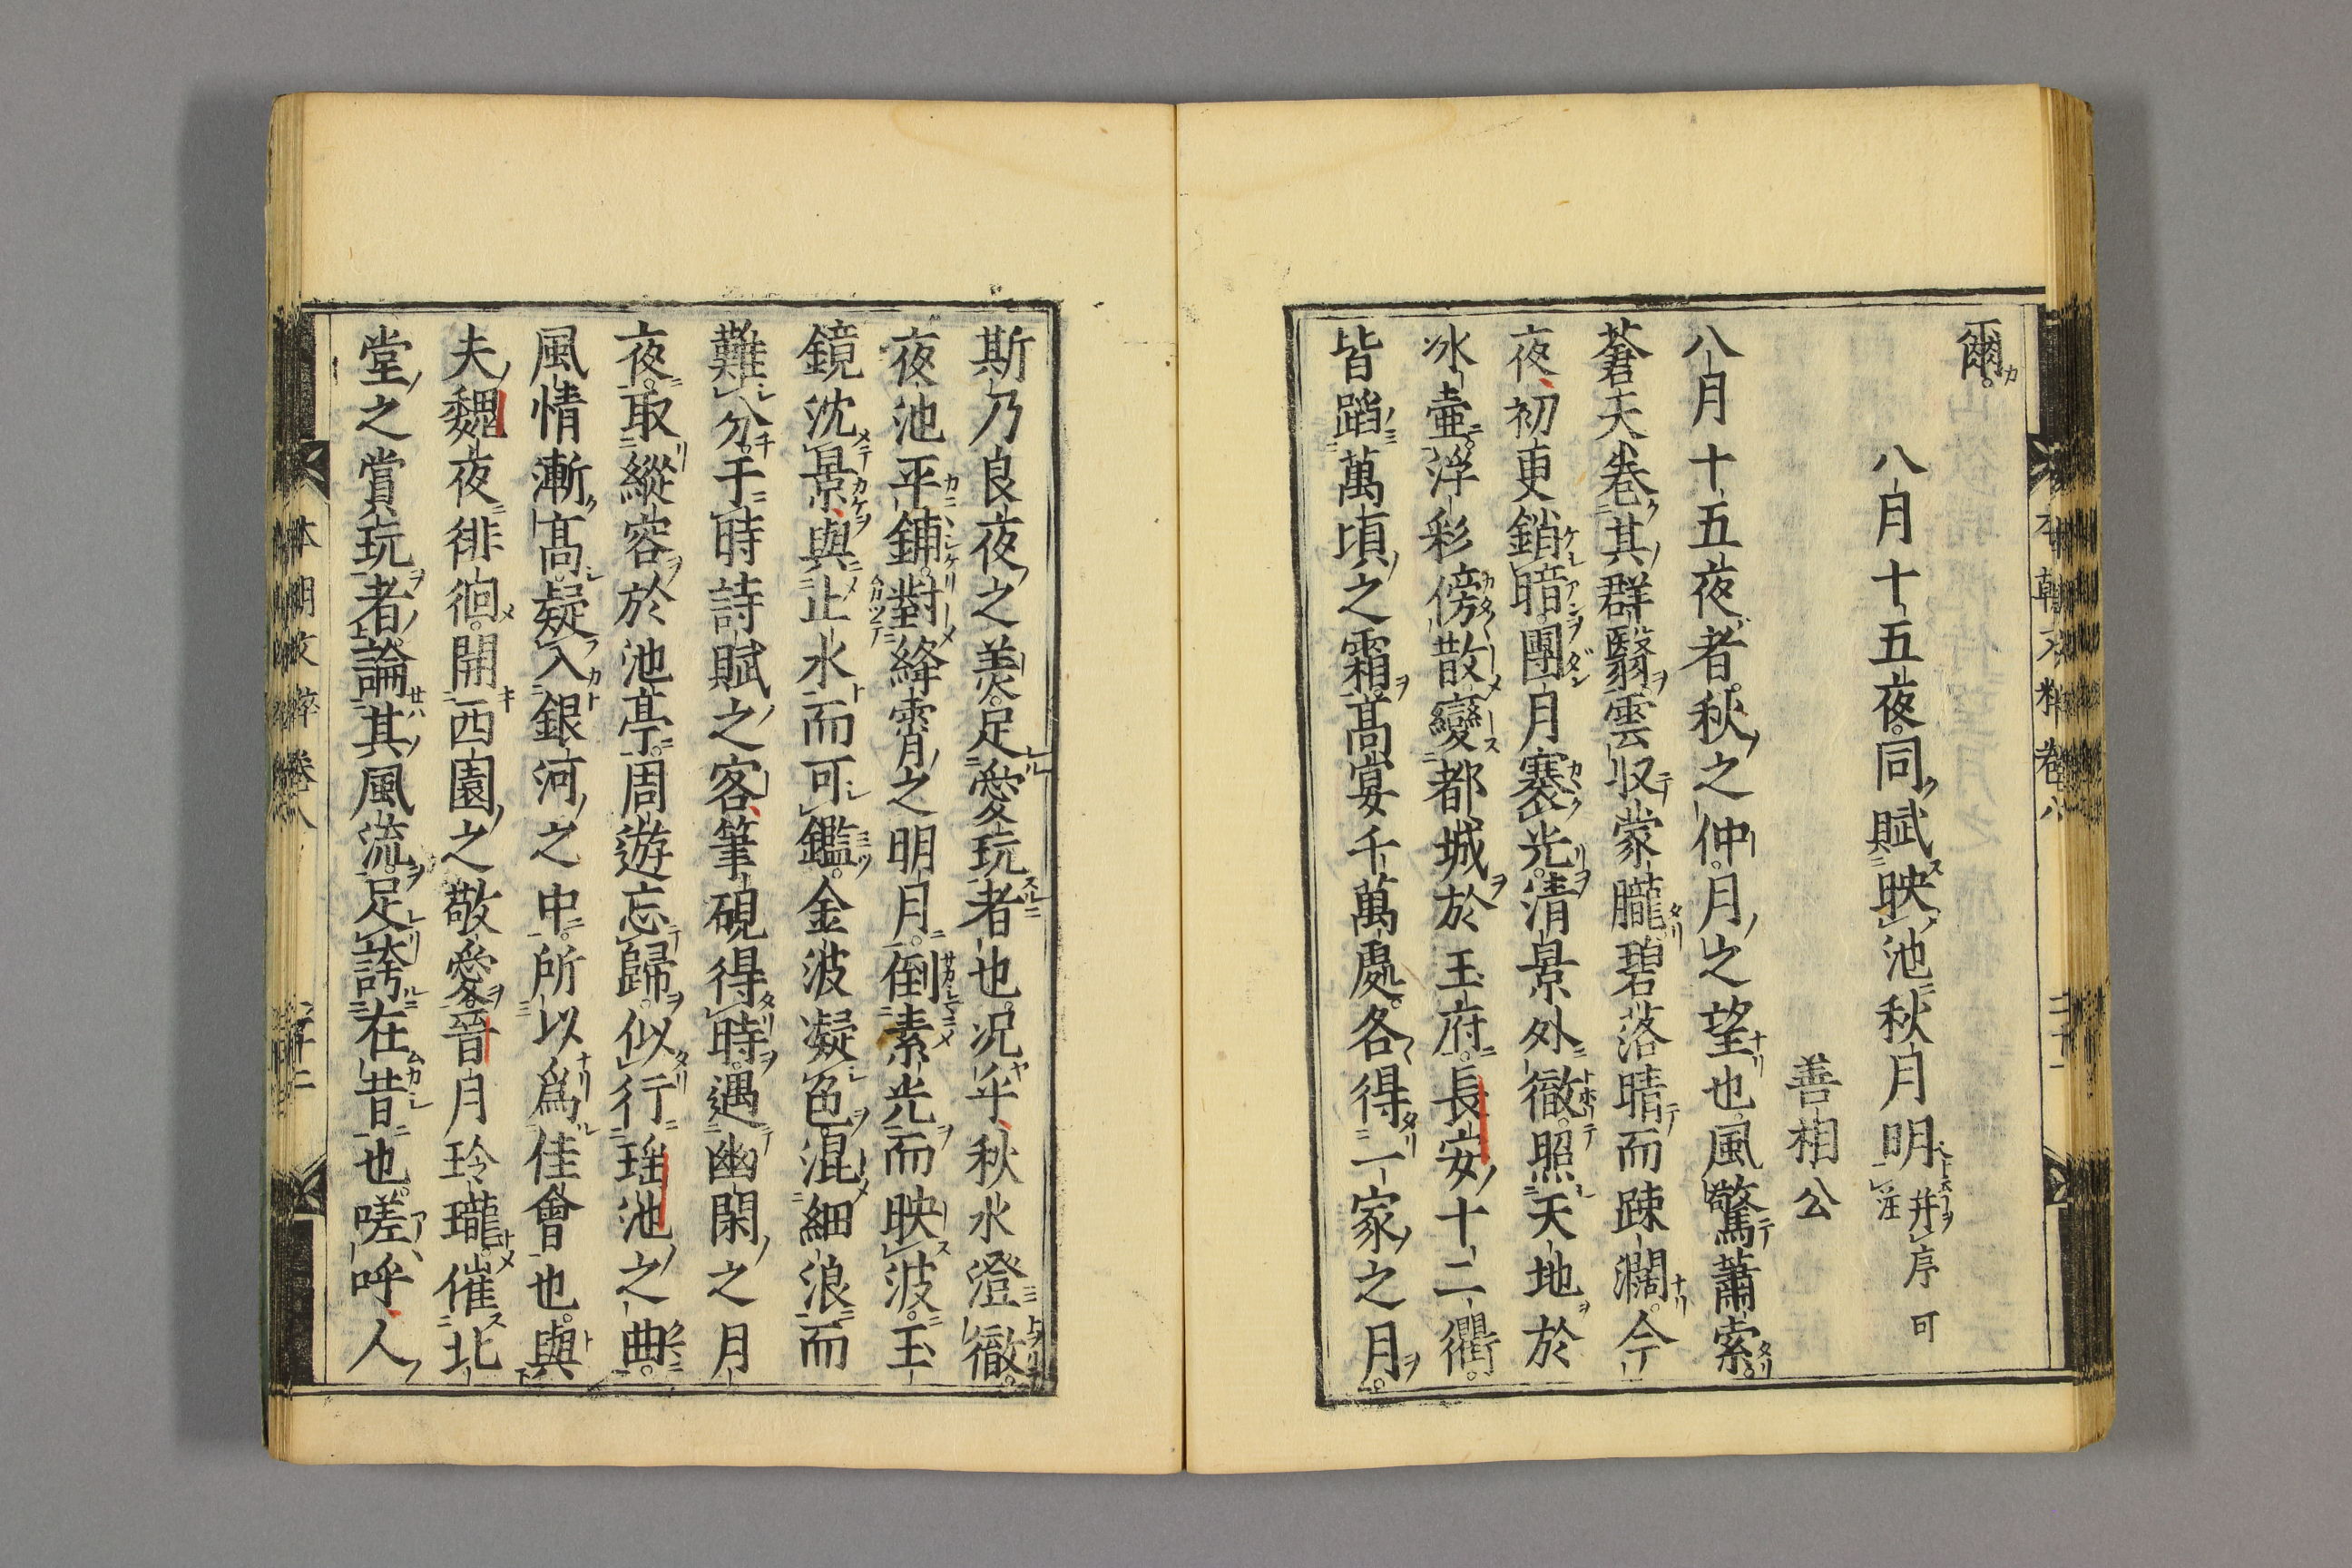 爾
八月十五夜同賦映池秋月明并序 可注
善相公
八月十五夜者秋之仲月之望也風驚蕭索
蒼天卷其群翳雲収蒙朧碧落晴而踈濶今
夜初更銷暗團月褰光清景外徹照天地於
冰壷浮彩傍散變都城於玉府長安十二衢
皆蹈萬頃之霜髙宴千萬處各得一家之月
斯乃良夜之羙足愛玩者也况乎秋水澄徹
夜池平鋪對絳霄之明月倒素光而映波玉
鏡沈景與止水而可鑑金波凝色混細浪而
難分于時詩賦之客筆硯得時遇幽閑之月
夜取縱容於池亭周遊忘歸似行瑶池之曲
風情漸髙疑入銀河之中所以爲佳會也與
夫魏夜徘徊開西園之敬愛晉月玲瓏催北
堂之賞玩者論其風流足誇在昔也嗟呼人
本朝文粹卷八
二十二